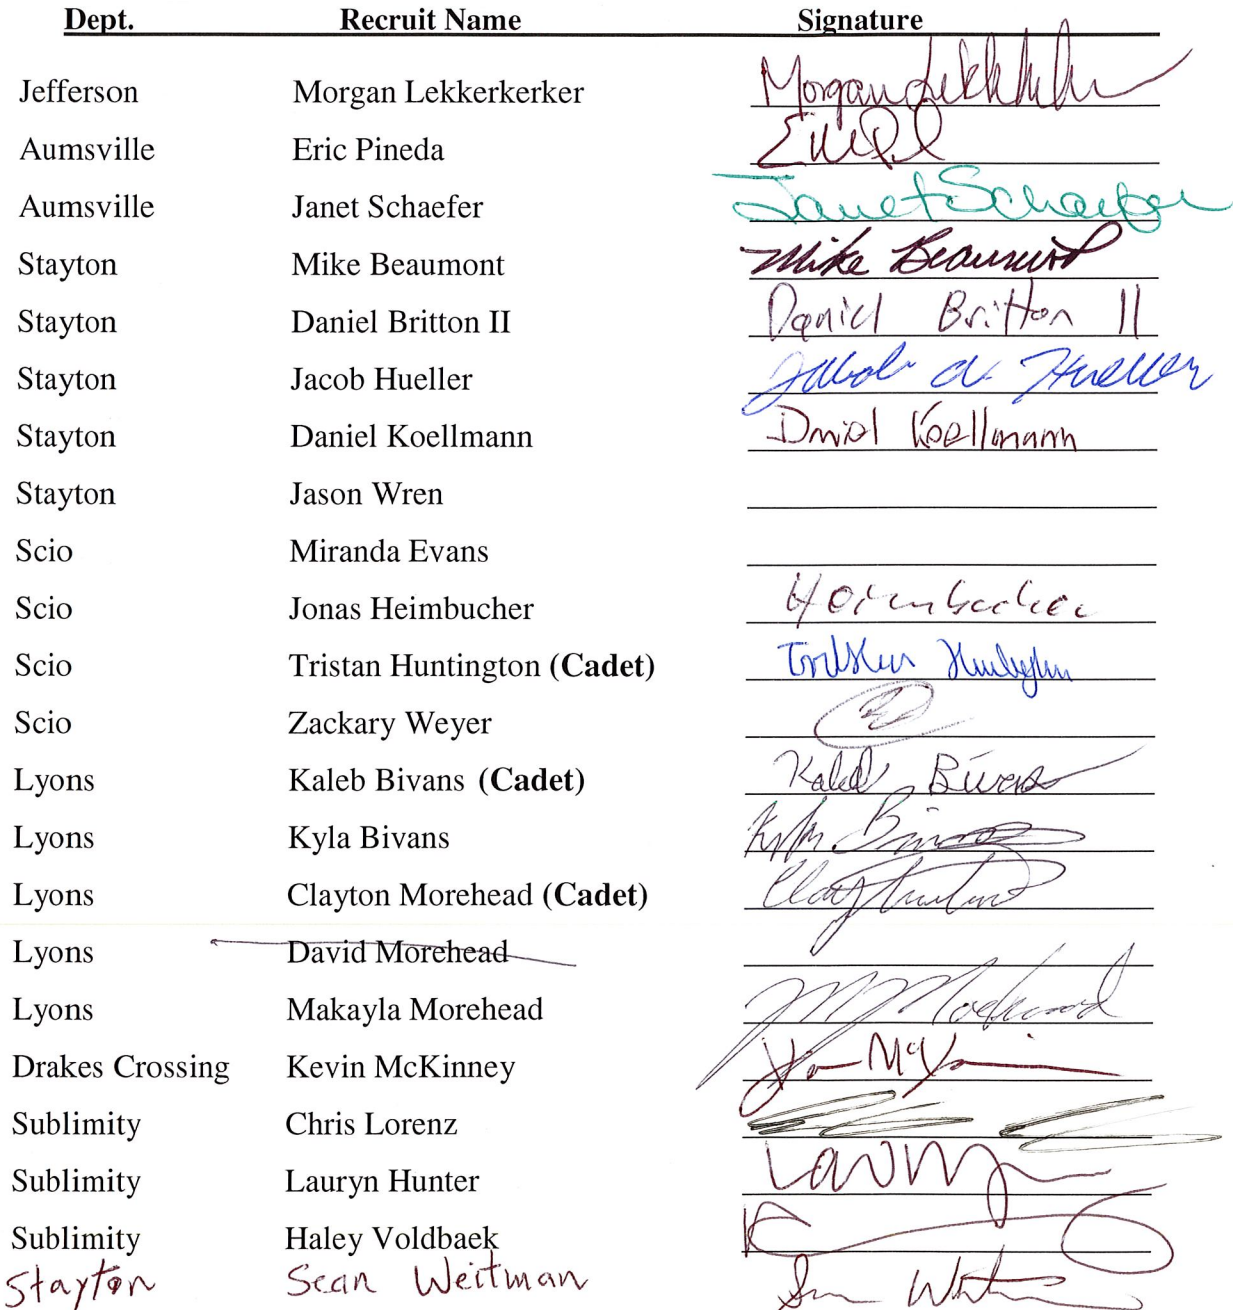 Dept. Recruit Name Signature
Jefferson Morgan Lekkerkerker Morgan Lekk
Aumsville Eric Pineda
Aumsville Janet Schaefer Janet Schaefer
Stayton Mike Beaumont Mike Beaumont
Stayton Daniel Britton II Daniel Britton II
Stayton Jacob Hueller Jakob A Hueller
Stayton Daniel Koellmann Daniel Koellmann
Stayton Jason Wren
Scio Miranda Evans
Scio Jonas Heimbucher Heimbucher
Scio Tristan Huntington (Cadet) Tristan
Scio Zackary Weyer
Lyons Kaleb Bivans (Cadet) Kaleb Bivans
Lyons Kyla Bivans Kyla
Lyons Clayton Morehead (Cadet)
Lyons David Morehead
Lyons Makayla Morehead M Morehead
Drakes Crossing Kevin McKinney
Sublimity Chris Lorenz
Sublimity Lauryn Hunter
Sublimity Haley Voldbaek
Stayton Sean Weitman